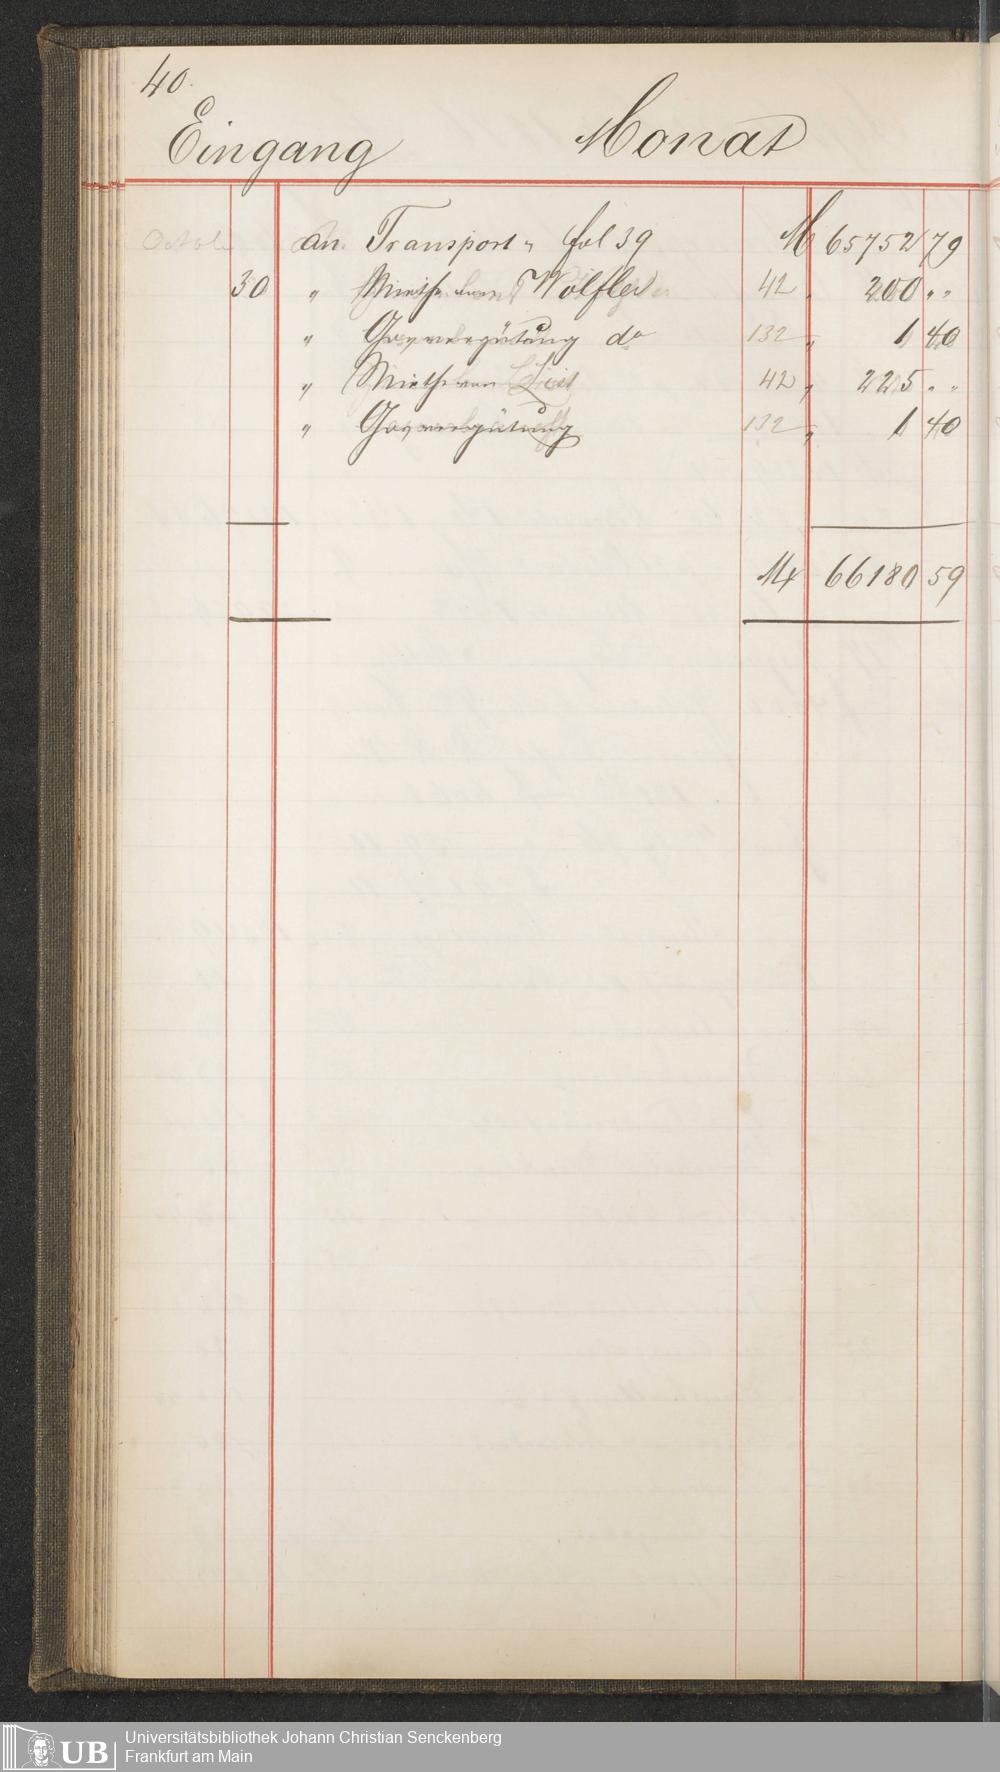 40.
Eingang Monat
Octob an Transport " fol 39 M 65752 79
30 " Miethe von Wölfler 42 " 200 " "
" Gasvergütung do 132 " 1 40
" Miethe von List 42 " 225 " "
" Gasvergütung 132 " 1 40
M 66180 59
UB Universitätsbibliothek Johann Christian Senckenberg
Frankfurt am Main